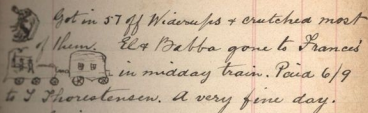 Got in 57 off Widerups & crutched most
of them. El & Babba gone to Francis'
in midday train. Paid 6/9
to T Thorestensen. A very fine day.